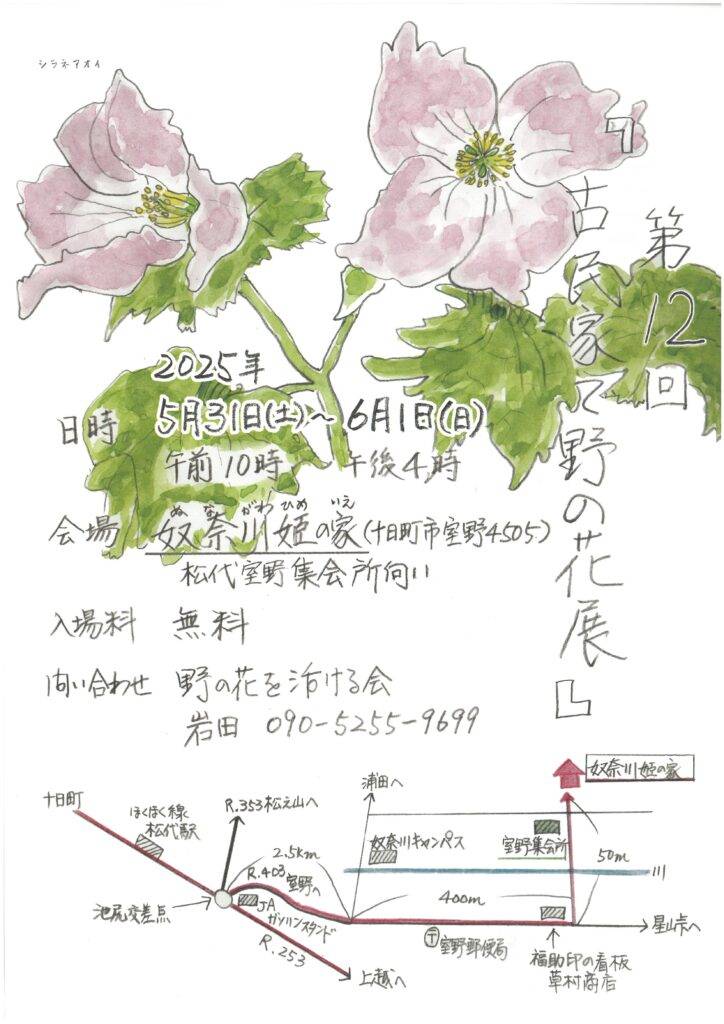 シラネアオイ
第12回
『古民家で野の花展』
日時 2025年
5月31日(土)～6月1日(日)
午前10時 午後4時
ぬながわひめ いえ
会場 奴奈川姫の家(十日町市室野4505)
松代室野集会所向い
入場料 無料
問い合わせ 野の花を活ける会
岩田 090-5255-9699
十日町
ほくほく線
松代駅
R.353松之山へ
池尻交差点
JA
ガソリンスタンド
R.253
上越へ
2.5km
R.403
室野へ
浦田へ
奴奈川キャンパス
室野集会所
奴奈川姫の家
50m
川
400m
〒室野郵便局
福助印の看板
草村商店
星峠へ